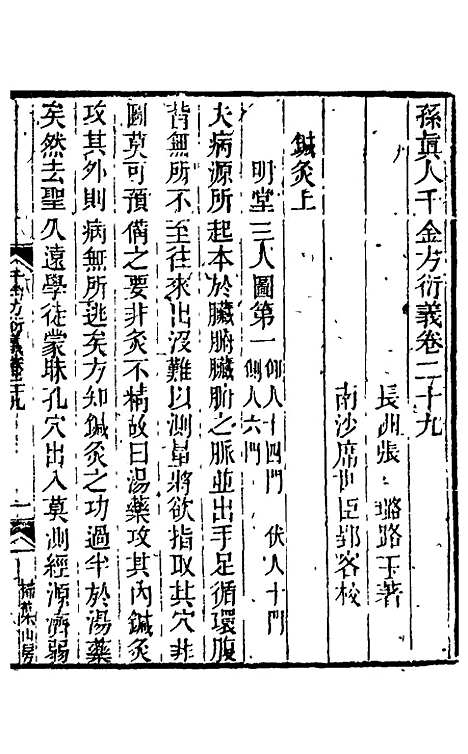 孫真人千金方衍義卷二十九
長洲張 璐路玉著
南沙席世臣郢客校
鍼灸上
明堂三人圖第一 仰人十四門 伏人十門 側人六門
夫病源所起本於臟腑臟腑之脈並出手足循環腹
背無所不至往來出沒難以測量將欲指取其穴非
圖莫可預備之要非灸不精故曰湯藥攻其內鍼灸
攻其外則病無所逃矣方知鍼灸之功過半於湯藥
矣然去聖久遠學徒蒙昧孔穴出入莫測經源濟弱
千金方衍義卷二十九 一 掃葉山房